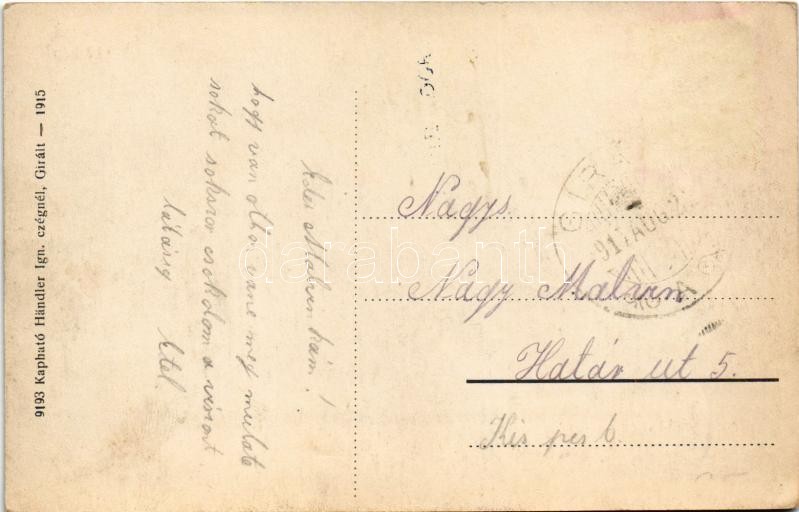 9193 Kapható Händler Ign. czégnél, Girált — 1915
Edes Malvin kám!
hogy van othon vane meg mulats
sokat sokszor csokolom a viszont
latásig Etel
Nagys.
Nagy Malvin
Határ ut 5.
Kis pest
917 AUG 2
darabanth